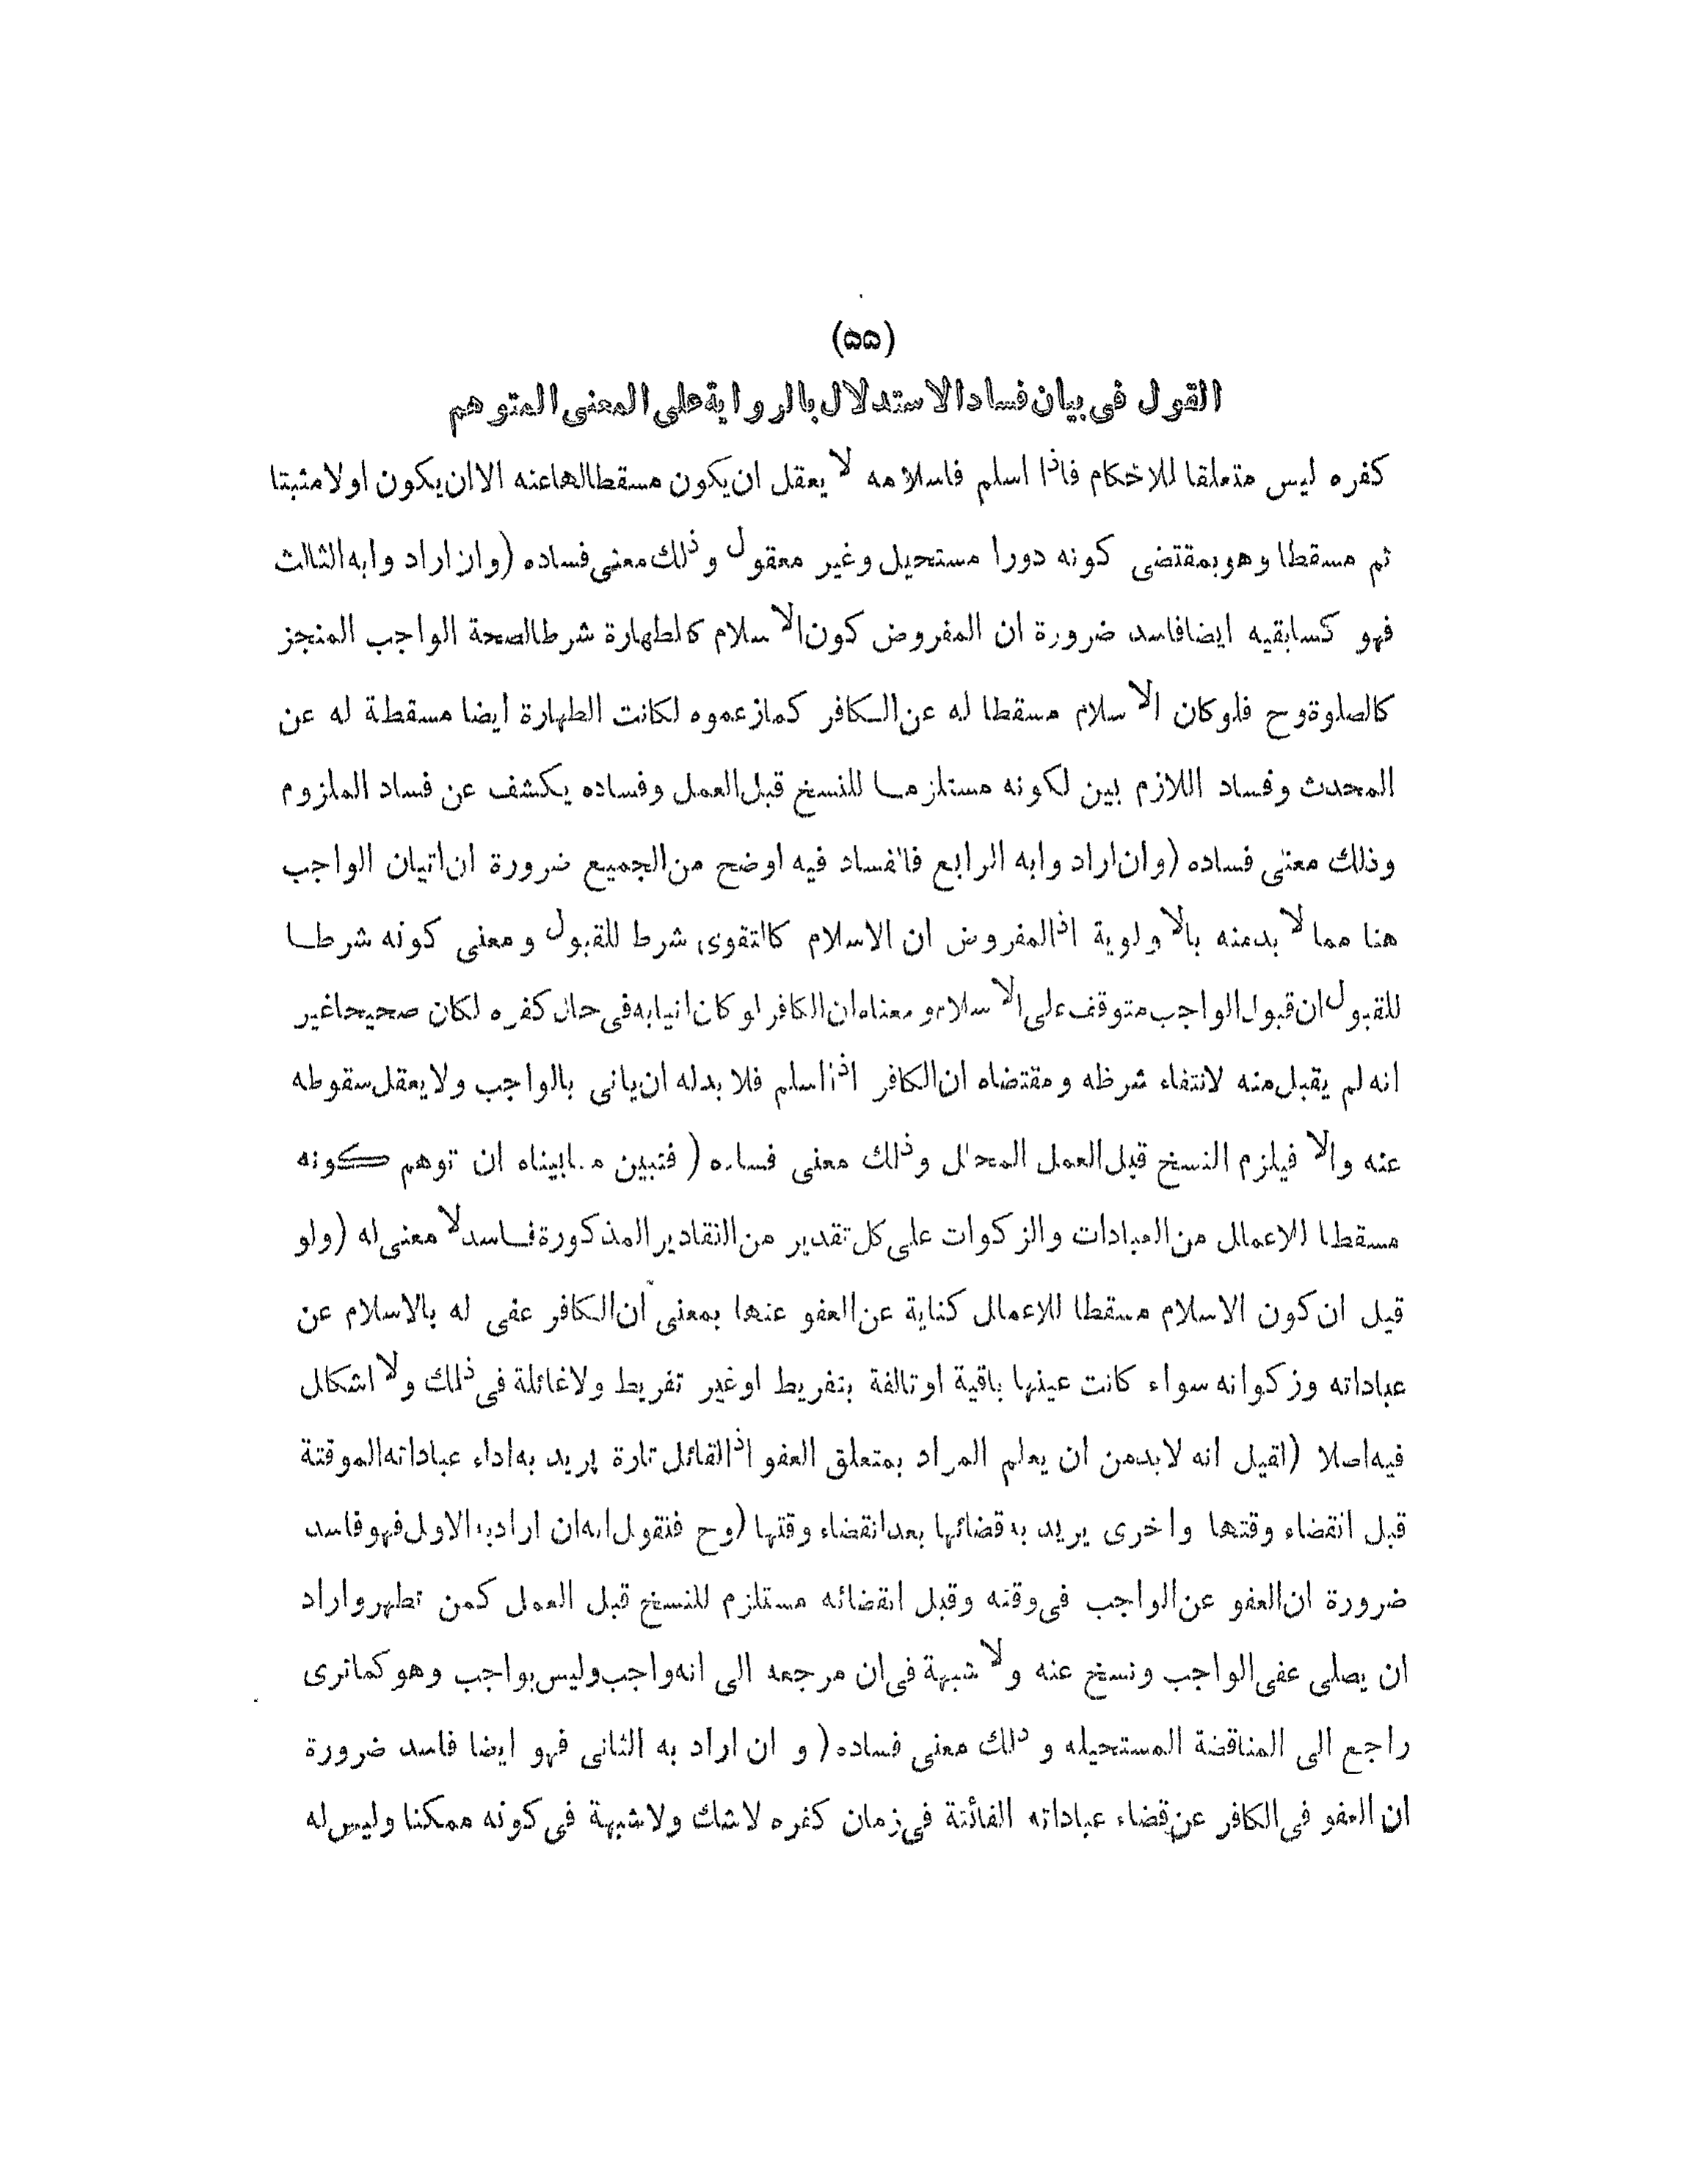 (۵۵)
القول فى بيان فساد الاستدلال بالرواية على المعنى المتوهم
كفره ليس متعلقا للاحكام فاذا اسلم فاسلامه لا يعقل ان يكون مسقطا لها عنه الا ان يكون اولا مثبتا
ثم مسقطا وهو بمقتضى كونه دورا مستحيل وغير معقول وذلك معنى فساده (وان اراد وابه الثالث
فهو كسابقيه ايضا فاسد ضرورة ان المفروض كون الاسلام كالطهارة شرطا لصحة الواجب المنجز
كالصلوة وح فلو كان الاسلام مسقطا له عن الكافر كما زعموه لكانت الطهارة ايضا مسقطة له عن
المحدث وفساد اللازم بين لكونه مستلزما للنسخ قبل العمل وفساده يكشف عن فساد الملزوم
وذلك معنى فساده (وان اراد وابه الرابع فالفساد فيه اوضح من الجميع ضرورة ان اتيان الواجب
هنا مما لا بدمنه بالاولوية اذ المفروض ان الاسلام كالتقوى شرط للقبول ومعنى كونه شرطا
للقبول ان قبول الواجب متوقف على الاسلام ومعناه ان الكافر لو كان اتيا به فى حال كفره لكان صحيحا غير
انه لم يقبل منه لانتفاء شرطه ومقتضاه ان الكافر اذا اسلم فلا بدله ان ياتى بالواجب ولا يعقل سقوطه
عنه والا فيلزم النسخ قبل العمل المحال وذلك معنى فساده ( فتبين مما بيناه ان توهم كونه
مسقطا للاعمال من العبادات والزكوات على كل تقدير من التقادير المذكورة فاسد لا معنى له (ولو
قيل ان كون الاسلام مسقطا للاعمال كناية عن العفو عنها بمعنى ان الكافر عفى له بالاسلام عن
عباداته وزكواته سواء كانت عينها باقية او تالفة بتفريط او غير تفريط ولا غائلة فى ذلك ولا اشكال
فيه اصلا (لقيل انه لا بدمن ان يعلم المراد بمتعلق العفو اذ القائل تارة يريد به اداء عباداته الموقتة
قبل انقضاء وقتها واخرى يريد به قضائها بعد انقضاء وقتها (وح فنقول له ان اراد به الاول فهو فاسد
ضرورة ان العفو عن الواجب فى وقته وقبل انقضائه مستلزم للنسخ قبل العمل كمن تطهر واراد
ان يصلى عفى الواجب ونسخ عنه ولا شبهة فى ان مرجعه الى انه واجب وليس بواجب وهو كما ترى
راجع الى المناقضة المستحيله و ذلك معنى فساده ( و ان اراد به الثانى فهو ايضا فاسد ضرورة
ان العفو فى الكافر عن قضاء عباداته الفائتة فى زمان كفره لا شك ولا شبهة فى كونه ممكنا وليس له